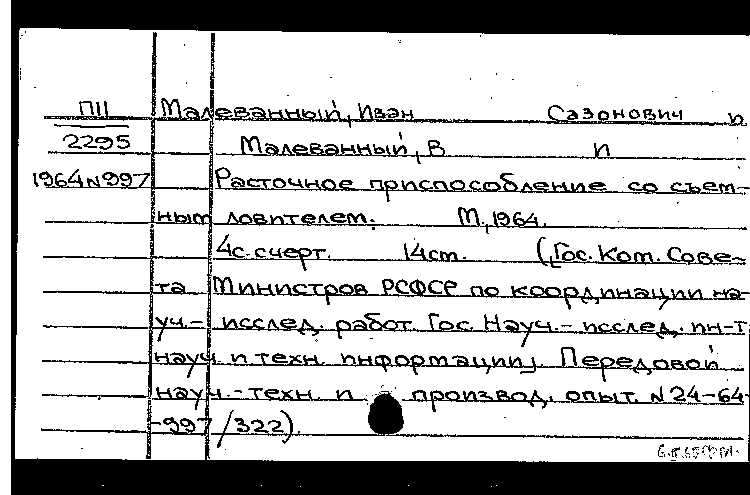 ПII Малеванный, Иван Сазонович и
2295 Малеванный, В и
1964 N 997 Расточное приспособление со съем-
ным ловителем. М, 1964.
4с. с черт. 14 см. ([Гос. Ком. Сове-
та Министров РСФСР по координации на-
уч.- исслед. работ. Гос. Науч.- исслед. ин-т
науч и техн. информации]. Передовой
науч.-техн. и производ. опыт. N 24-64-
-997/322).